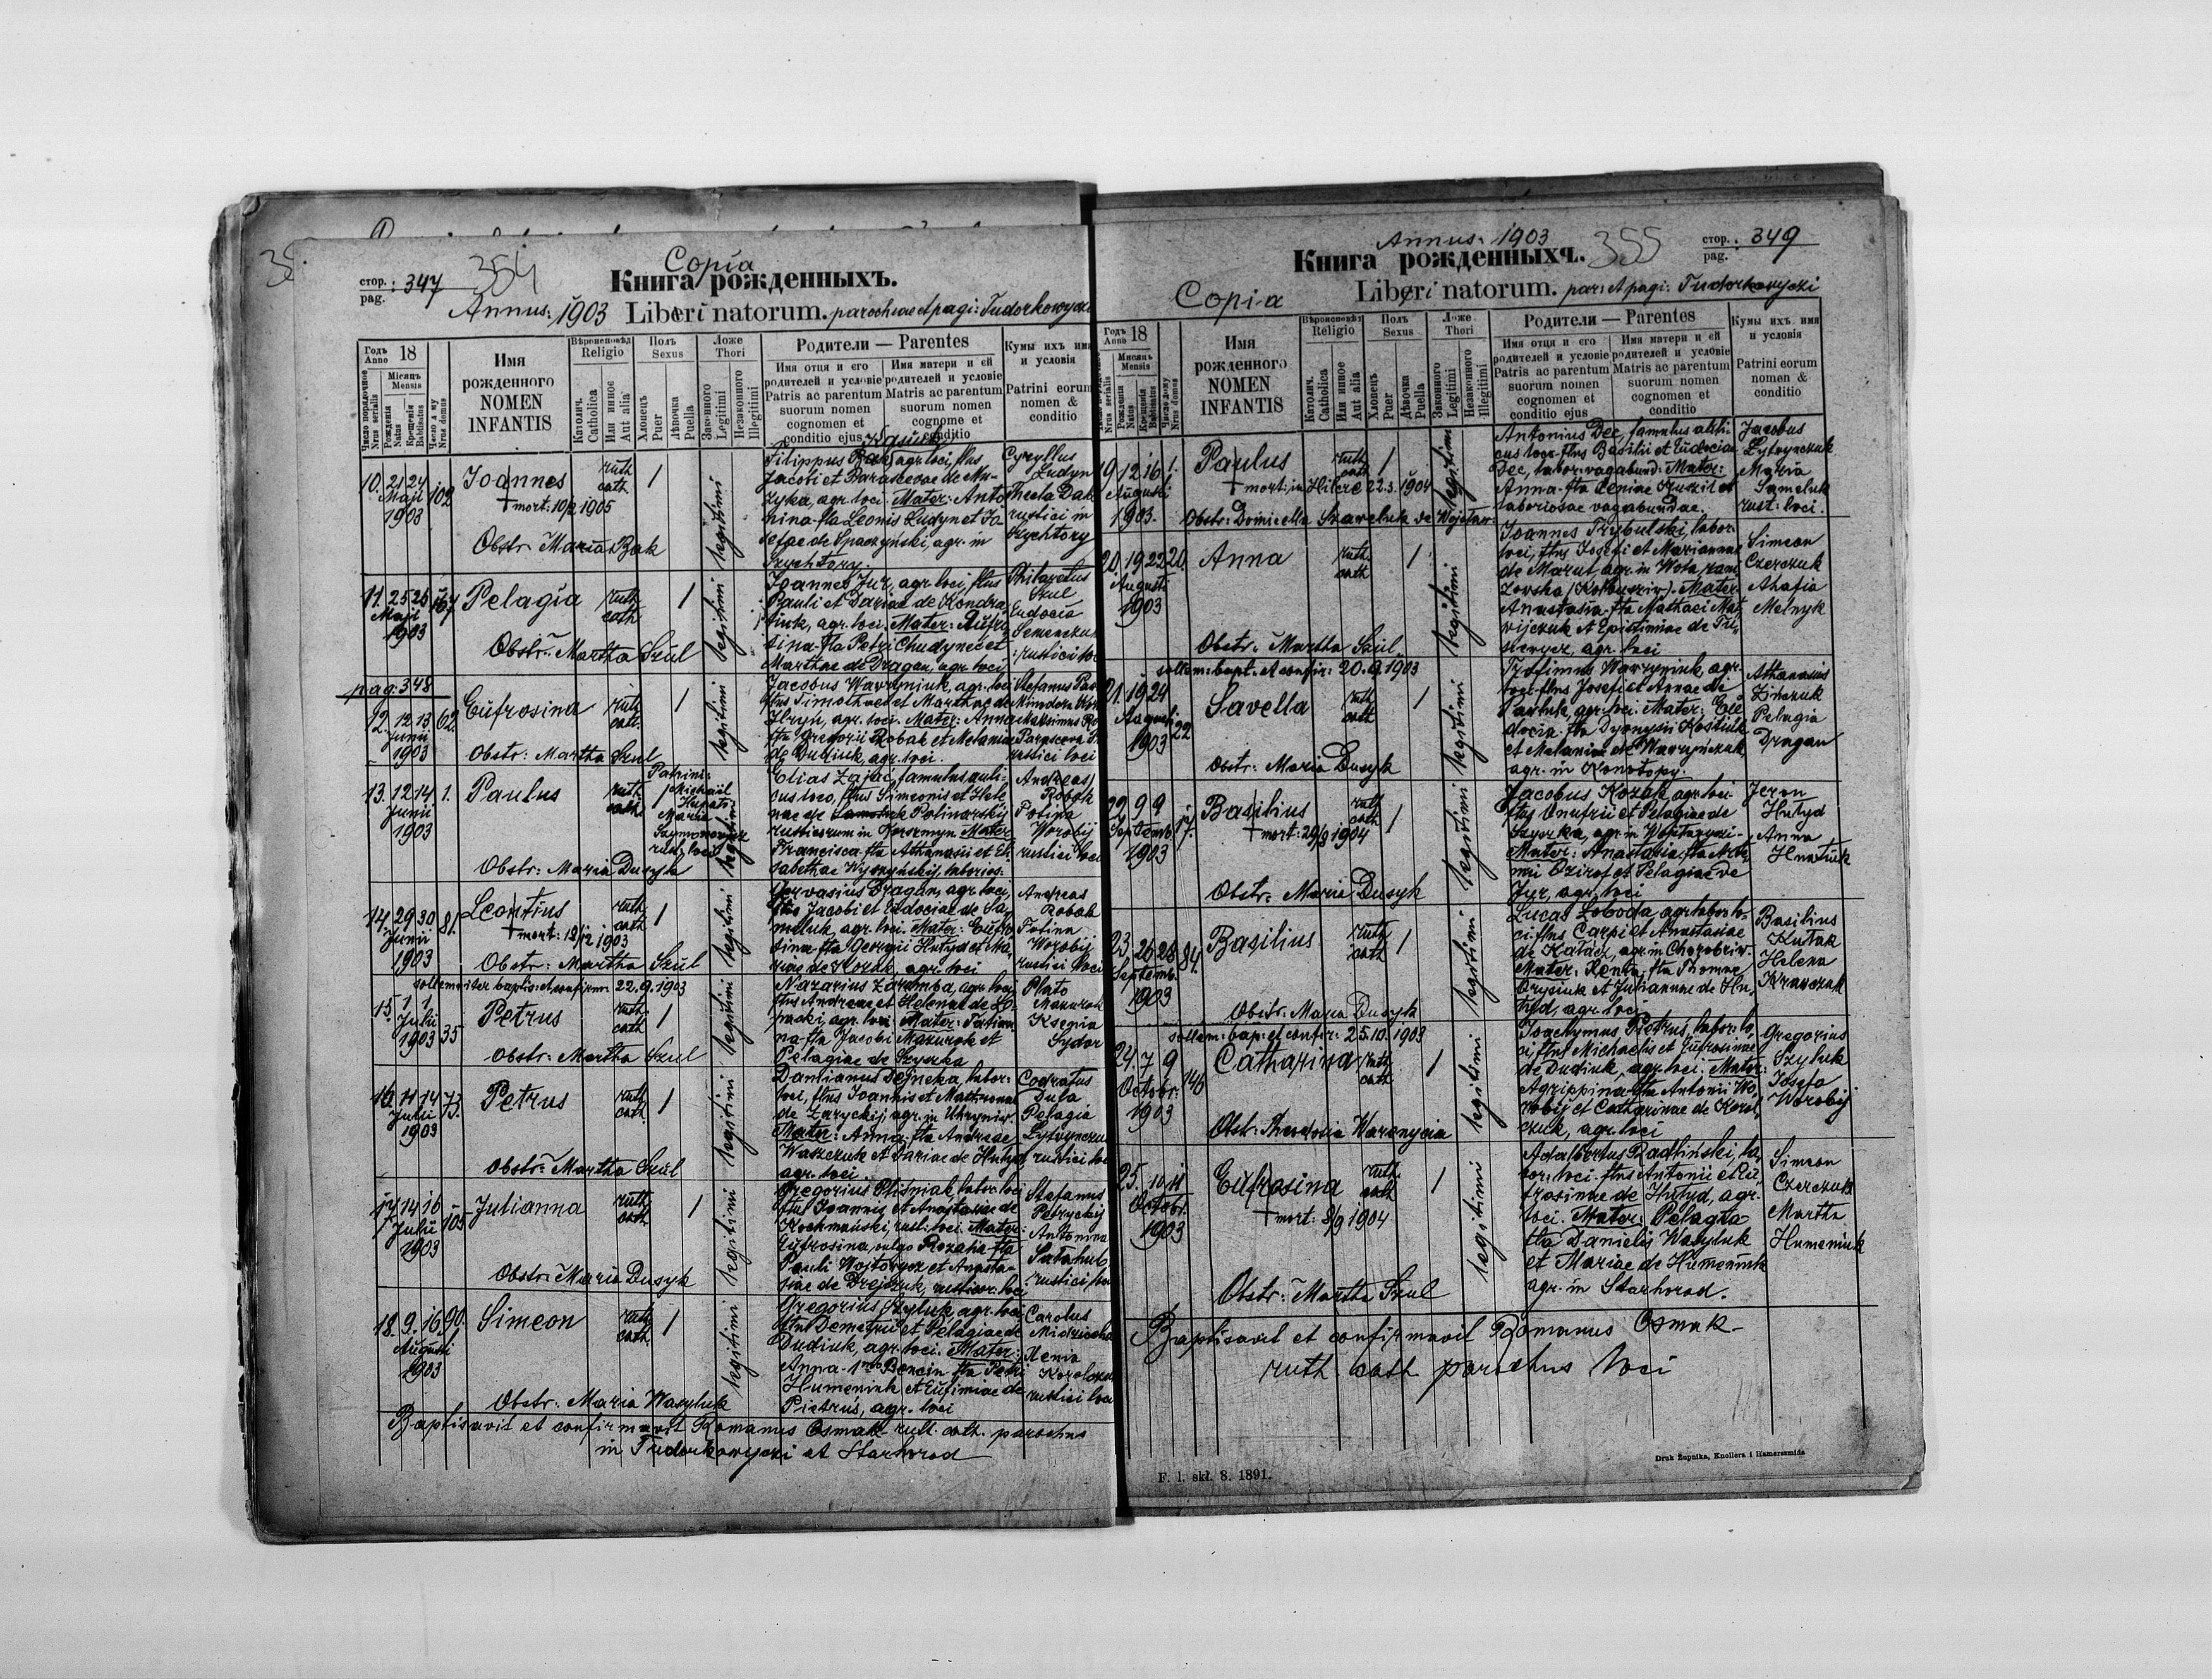 стор. pag. : 347
354
Copia
Книга рожденныхъ.
Annus: 1903 Libri natorum. parochiae et pagi: Tudorkowycze
Годъ Anno 18
Имя рожденного NOMEN INFANTIS
Вѣроисповѣд Religio
Полъ Sexus
Ложе Thori
Родители — Parentes
Кумы ихъ имя и условія
Число порядочное Nrus serialis
Місяцъ Mensis
Рожденія Natus
Крещенія Babtisatus
Число дому Nrus domus
Католич. Catholica
Или инное Aut alia
Хлопецъ Puer
Дѣвочка Puella
Законного Legitimi
Незаконного Illegitimi
Имя отца и его родителей и условіе Patris ac parentum suorum nomen cognomen et conditio ejus
Имя матери и ей родителей и условіе Matris ac parentum suorum nomen cognome et conditio
Patrini eorum nomen & conditio
10. 21 24 Maji 1903 102
Joannes
+ mort: 1905
ruth. cath. 1
legitimi
Filippus Bak, agr. loci, flus
Jacobi et Parascevae de Mu-
zyka, agr. loci. Mater: Anto-
nina fla Leonis Ludyn et Jo-
sefae de Spaczyński, agr. in
Szychtory.
Cyryllus
Ludyn
Thecla Bak
rustici in
Szychtory
Obstr: Maria Bak
11. 25 26 Maji 1903 167
Pelagia
ruth. cath. 1
legitimi
Joannes Jur, agr. loci, flus
Pauli et Dariae de Kondra-
tiuk, agr. loci. Mater: Eufro-
sina fla Petri Chudynec et
Marthae de Dragan, agr. loci
Philaretus
Szul
Eudocia
Semenczuk
rustici loci
Obstr: Martha Szul
pag: 348
12. 12 13 Junii 1903 62
Eufrosina
ruth. cath. 1
legitimi
Jacobus Wawryniuk, agr. loci
flus Timothaei et Marthae de
Hryń, agr. loci. Mater: Anna
fla Gregorii Robak et Melaniae
de Dudiuk, agr. loci.
Stefanus
Maksimus
Parasceva
rustici loci
Obstr: Martha Szul
13. 12 14 Junii 1903 1.
Paulus
ruth. cath. 1
Patrini:
Michaël
Maria
Szymonowycz
rust. loci
legitimi
Elias Zając, famulus auli-
cus loco, flus Simeonis et Hele-
nae de Polinarskij
rusticorum in Korczmyn Mater
Francisca fla Athanasii et Eli-
sabethae Wyszyńskij, laborios:
Andreas
Robak
Fotina
Worobij
rustici loci
Obstr: Maria Dusyk
14. 29 30 Junii 1903 81.
Leontius
+ mort: 1903
ruth. cath. 1
legitimi
Gervasius Dragan, agr. loci,
flus Jacobi et Eudociae de Sa-
meluk, agr. loci. Mater: Eufro-
sina fla Georgii Hutyd et Ma-
riae de Kozak, agr. loci
Andreas
Robak
Fotina
Worobij
rustici loci
Obstr: Martha Szul
sollemniter baptis: et confirm 22.9.1903
15. 1 1 Julii 1903 35
Petrus
ruth. cath. 1
legitimi
Nazarius Zaremba, agr. loci,
flus Andreae et Helenae de Lo-
packi, agr. loci. Mater: Tatian-
na fla Jacobi Mazurok et
Pelagiae de Szyszka
Plato
Mazurok
Ksenia
Sydor
Obstr: Martha Szul
16. 11 14 Julii 1903 73.
Petrus
ruth. cath. 1
legitimi
Damianus Dejneka, labor.
loci, flus Joannis et Matronae
de Zaryckij, agr. in Uhrynów.
Mater: Anna fla Andreae
Waszczuk et Dariae de Hutyd,
agr. loci.
Codratus
Dula
Pelagia
Lytwynczuk
rustici loci
Obstr: Martha Szul
17. 14 16 Julii 1903 105
Julianna
ruth. cath. 1
legitimi
Gregorius Pliśniak, labor. loci
flus Joannis et Anastasiae de
Kochmański, rust. loci. Mater:
Eufrosina, vulgo Rozalia fla
Pauli Wojtowycz et Anasta-
siae de Trejczuk, rusticor. loci
Stefanus
Petryckij
Antonina
Satahub
rustici loci
Obstr: Maria Dusyk
18. 9. 16 Augusti 1903 90.
Simeon
ruth. cath. 1
legitimi
Gregorius Szyluk, agr. loci
flus Demetrii et Pelagiae de
Dudiuk, agr. loci. Mater:
Anna 1mo Bencin fla Petri
Humeniuk et Eufimiae de
Pietruś, agr. loci
Carolus
Xenia
rustici loci
Obstr: Maria Wasyluk
Baptisavit et confirmavit Romanus Osmak ruth. cath. parochus
in Tudorkowyczi et Starhorod
Annus: 1903
355
стор. pag. : 349
Книга рожденныхъ.
Copia
Libri natorum. par: et pagi: Tudorkowyczi
Годъ Anno 18
Имя рожденного NOMEN INFANTIS
Вѣроисповѣд Religio
Полъ Sexus
Ложе Thori
Родители — Parentes
Кумы ихъ имя и условія
Місяцъ Mensis
Nrus serialis
Рожденія Natus
Крещенія Babtisatus
Число дому Nrus domus
Католич. Catholica
Или инное Aut alia
Хлопецъ Puer
Дѣвочка Puella
Законного Legitimi
Незаконного Illegitimi
Имя отца и его родителей и условіе Patris ac parentum suorum nomen cognomen et conditio ejus
Имя матери и ей родителей и условіе Matris ac parentum suorum nomen cognomen et conditio
Patrini eorum nomen & conditio
19. 12 16 Augusti 1903. 1.
Paulus
+ mort: in Hilcze 22.3.1904
ruth. cath. 1
legitimi
Antonius Dec, famulus auli-
cus loco flus Basilii et Eudociae
Dec, labor. vagabund: Mater:
Anna fla Xeniae Kuszil et
laboriosae vagabundae.
Jacobus
Lytwynczuk
Maria
Sameluk
rust. loci.
Obstr: Domicella Szaweluk de Wojsław:
20. 19 22 Augusti 1903 20.
Anna
ruth. cath. 1
legitimi
Joannes Trybulski, labor.
loci, flus Josefi et Mariannae
de Marut, agr. in Wola ran-
Mater
Anastasia fla Mathaei Mat-
wijczuk et Epistimiae de
agr. loci
Simeon
Czerczuk
Ahafia
Melnyk
Obstr: Martha Szul
sollem: bapt. et confir: 20.9.1903
21. 19 24 Augusti 1903 22
Savella
ruth. cath. 1
legitimi
Trofimus Wawryniuk, agr.
loci flus Josefi et Annae de
Pawluk, agr. loci. Mater: Eu-
docia fla Dyonysii Kostiuk
et Melaniae de Wawryńczuk,
agr. in Konotopy.
Athanasius
Zinczuk
Pelagia
Dragan
Obstr: Maria Dusyk
22. 9 9 Septemb. 1903 17.
Basilius
+ mort: 29/8 1904
ruth. cath. 1
legitimi
Jacobus Kozak, agr. loci
flus Onufrii et Pelagiae de
Szyszka, agr. in
Mater: Anastasia fla
et Pelagiae de
Jur, agr. loci
Jeron
Hutyd
Anna
Hnatiuk
Obstr: Maria Dusyk
23. 26 28 Septemb. 1903 84.
Basilius
ruth. cath. 1
legitimi
Lucas Loboda, agr. labor. lo-
ci flus Carpi et Anastasiae
de Kałacz, agr. in Chorobrów.
Mater: Xenia fla Thomae
Oryciuk et Juliannae de Hu-
tyd, agr. loci
Basilius
Kułak
Helena
Krawczuk
Obstr: Maria Dusyk
sollem: bap: et confir: 25.10.1903
24. 7 9 Octobr. 1903 146
Catharina
ruth. cath. 1
legitimi
Joachymus Pietruś, labor. lo-
ci, flus Michaelis et Eufrosinae
de Dudiuk, agr. loci. Mater:
Agrippina fla Antonii Wo-
robij et Catharinae de Korol-
czuk, agr. loci
Gregorius
Szyluk
Josefa
Worobij
Obstr: Theodosia Waronycia
25. 10 11 Octobr. 1903
Eufrosina
+ mort: 8/9 1904
ruth. cath. 1
legitimi
Adalbertus Radliński, la-
bor. loci flus Antonii et Eu-
frosinae de Hutyd, agr.
loci. Mater: Pelagia
fla Danielis Wasyluk
et Mariae de Humeniuk
agr. in Starhorod.
Simeon
Czerczuk
Martha
Humeniuk
Obstr: Martha Szul
Baptisavit et confirmavit Romanus Osmak
ruth. cath. parochus loci
Druk Żupnika, Knollera i Hamerszmida
F. I. skł. 8. 1891.